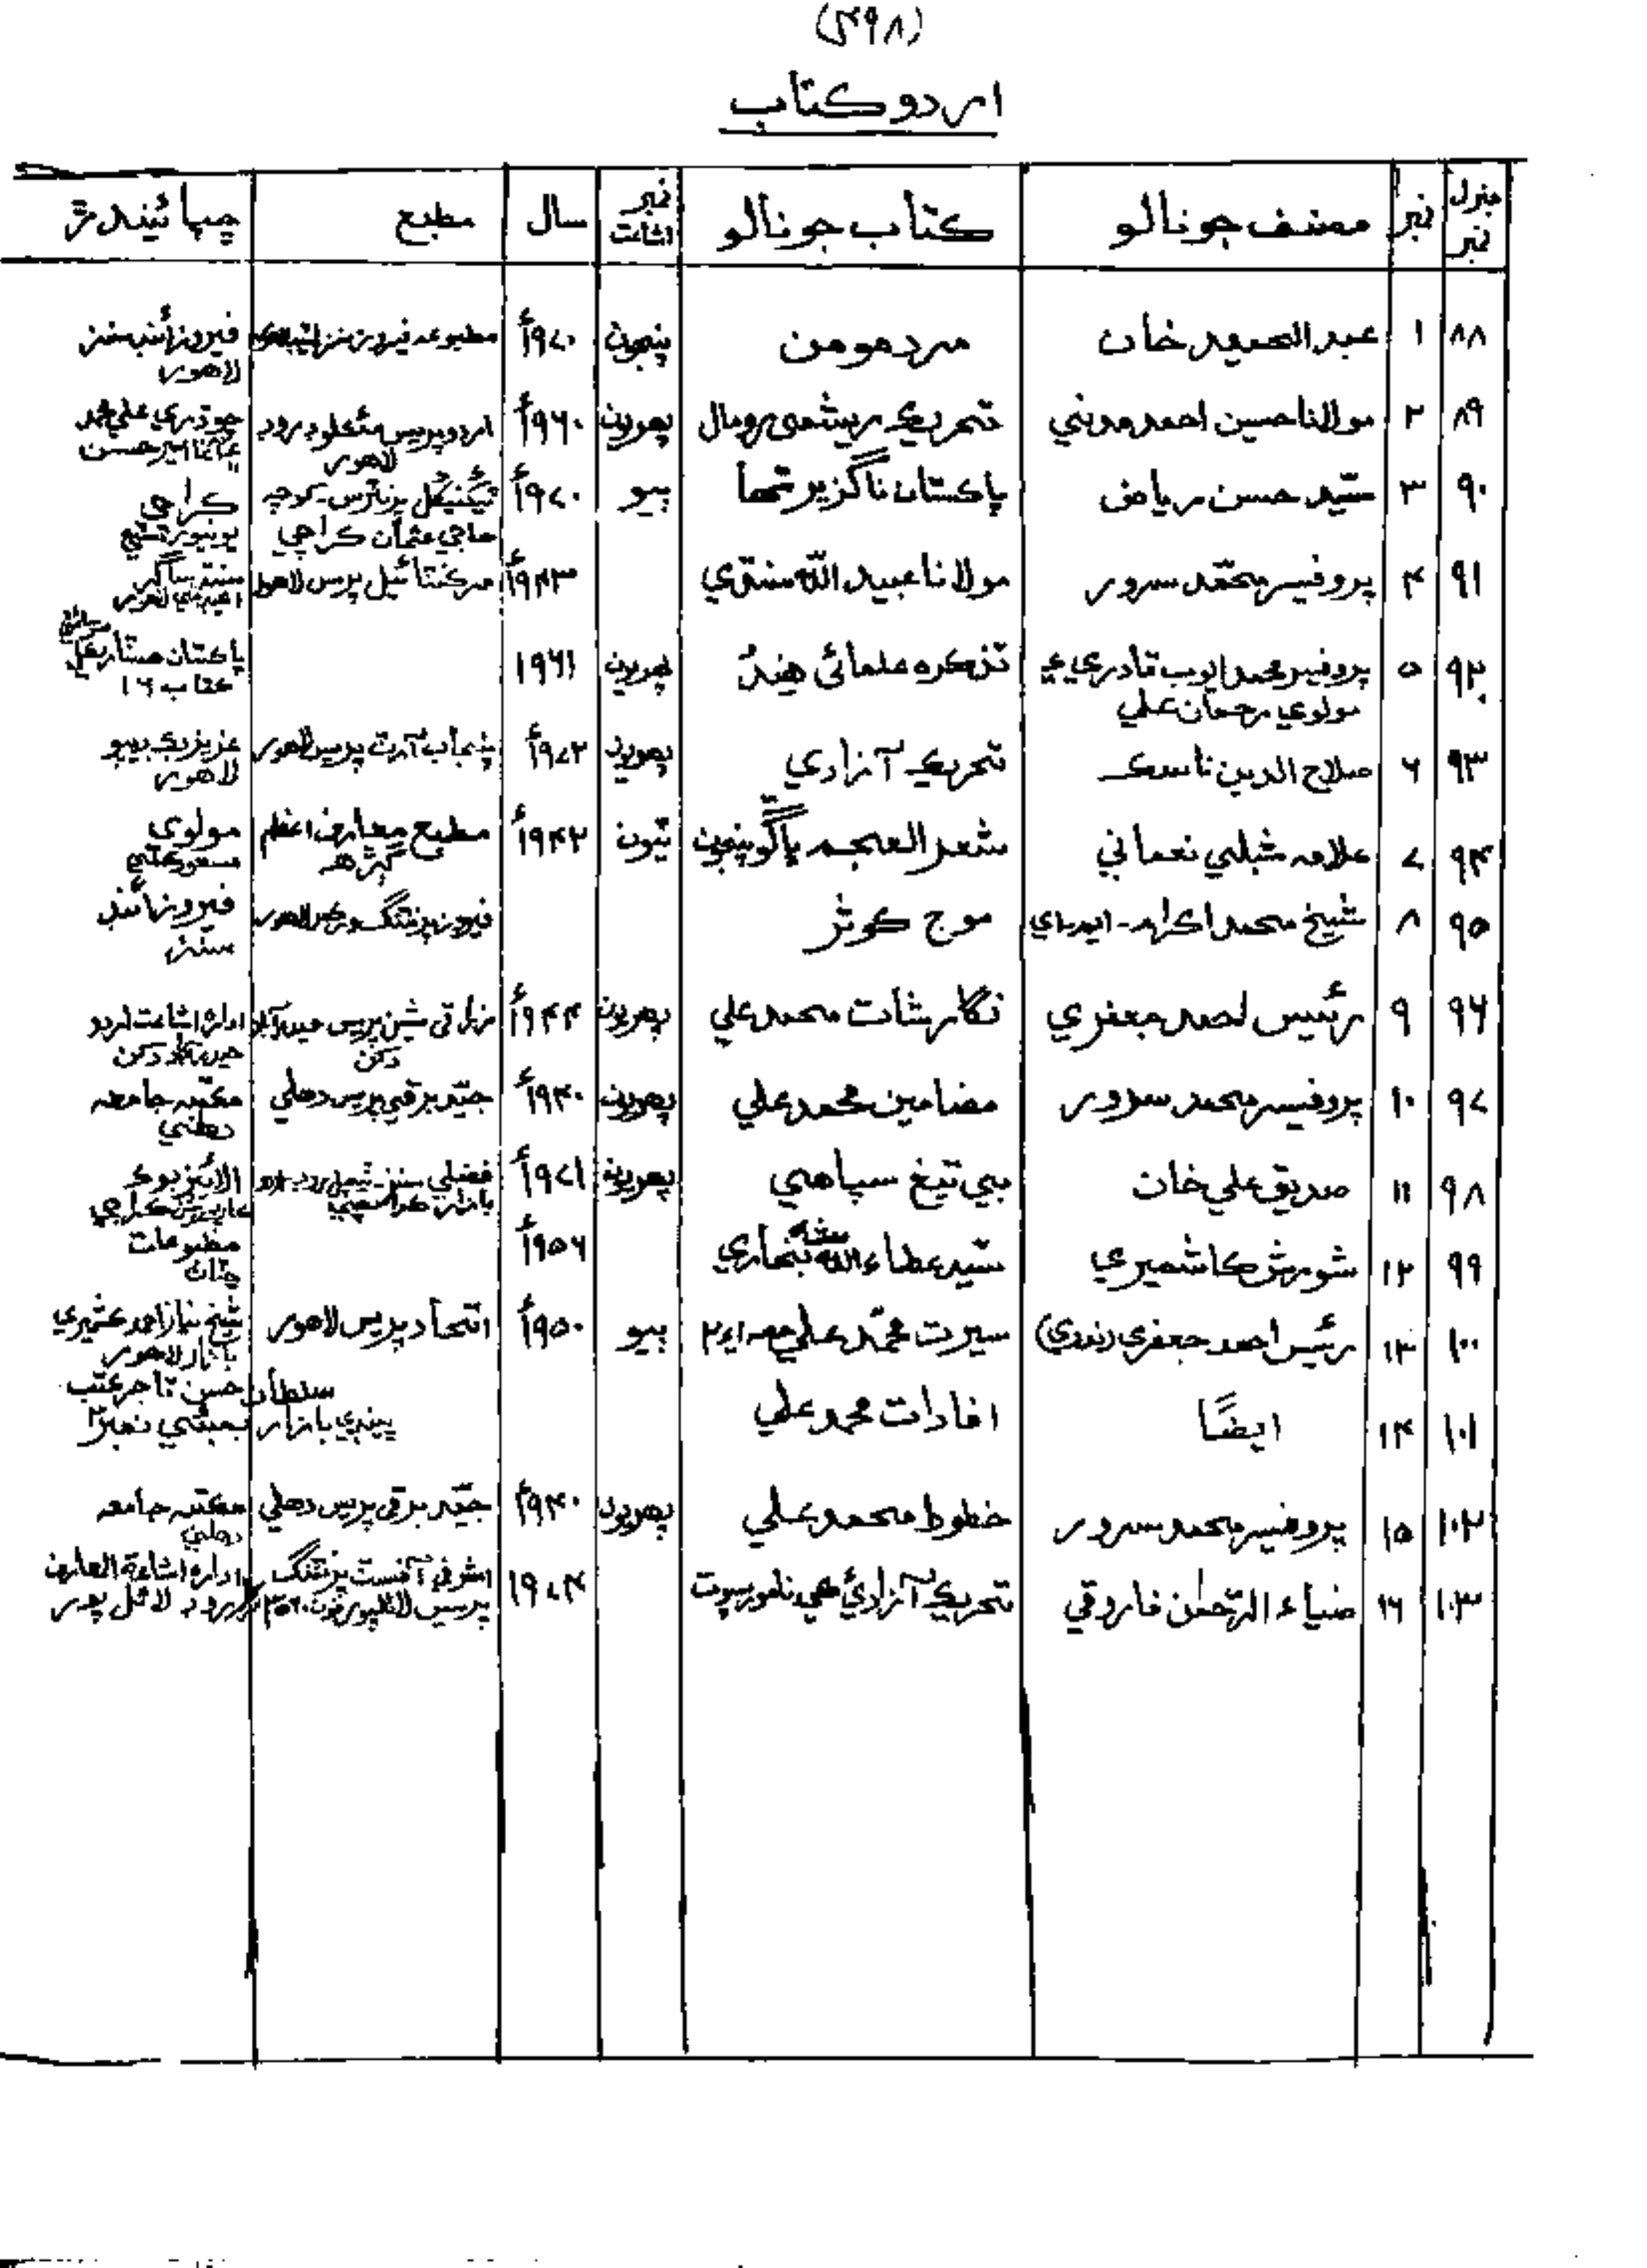 (۳۹۸)
اردو ڪتاب
جنرل نمبر | نمبر | مصنف جو نالو | ڪتاب جو نالو | نمبر اشاعت | سال | مطبع | ڇپائيندڙ
۸۸ | ۱ | عبدالحميد خان | مرد مومن | پنجون | ۱۹۷۰ع | مطبوعہ فيروز سنز | فيروز اينڊ سنز لاهور
۸۹ | ۲ | مولانا حسين احمد مدني | تحريڪ ريشمی رومال | پهريون | ۱۹۶۰ع | اردو پريس ميڪلوڊ روڊ لاهور | چوڌري علي محمد
۹۰ | ۳ | سيّد حسن رياض | پاڪستان ناگزير تھا | ٻيو | ۱۹۷۰ع | ٽيڪنيڪل پرنٽرس ڪوچه حاجي عثمان ڪراچي | ڪراچي يونيورسٽي
۹۱ | ۴ | پروفيسر محمّد سرور | مولانا عبيد اللّٰه سنڌي | ۱۹۴۳ع | مرڪنٽائيل پريس لاهور | سنڌ ساگر اڪيڊمي لاهور
۹۲ | ۵ | پروفيسر محمد ايوب قادري مولوي رحمان علي | تذڪره علمائی هند | پهريون | ۱۹۶۱ | پاڪستان
۹۳ | ۶ | صلاح الدين ناسڪ | تحريڪ آزادي | پهريون | ۱۹۷۲ع | پنجاب آرٽ پريس لاهور | عزيز بڪ ڊيپو لاهور
۹۴ | ۷ | علامه شبلي نعماني | شعر العجم ڀاڱو پنجون | ٽيون | ۱۹۴۲ع | مطبع معارف اعظم ڳڙهه | مولوی مسعود علي
۹۵ | ۸ | شيخ محمد اڪرام - ايم اي | موج ڪوثر | فيروز پرنٽنگ ورڪس لاهور | فيروز اينڊ سنز
۹۶ | ۹ | رئيس احمد جعفري | نگارشات محمد علي | پهريون | ۱۹۴۴ع | رزاقي مشين پريس حيدرآباد دکن | اداره اشاعت اردو حيدرآباد دکن
۹۷ | ۱۰ | پروفيسر محمد سرور | مضامين محمد علي | پهريون | ۱۹۴۰ع | جيّد برقي پريس دهلي | مڪتبه جامعه دهلي
۹۸ | ۱۱ | صديق علي خان | بي تيغ سپاهي | پهريون | ۱۹۷۱ع | فضلي سنز ٽيمپل روڊ اردو بازار ڪراچي | الائيڊ بوڪ ڪراچي
۹۹ | ۱۲ | شورش ڪاشميري | سيد عطاء اللّٰه شاهه بخاري | ۱۹۵۶ع | مطبوعات چٽان
۱۰۰ | ۱۳ | رئيس احمد جعفري (ندوي) | سيرت محمّد علي حصه ۱ ۽ ۲ | ٻيو | ۱۹۵۰ع | اتحاد پريس لاهور | شيخ نياز احمد ڪشميري بازار لاهور
۱۰۱ | ۱۴ | ايضًا | افادات محمد علي | سلطان حسن تاجر ڪتب ڀينڊي بازار بمبئي نمبر ۳
۱۰۲ | ۱۵ | پروفيسر محمد سرور | خطوط محمد علي | پهريون | ۱۹۴۰ع | جيّد برقي پريس دهلي | مڪتبه جامعه دهلي
۱۰۳ | ۱۶ | ضياء الرّحمٰن فاروقي | تحريڪ آزادئ کي نامور سپوت | ۱۹۷۴ | اشرفي آفسٽ پرنٽنگ پريس لائلپور | اداره اشاعة المعارف روڊ لائل پور